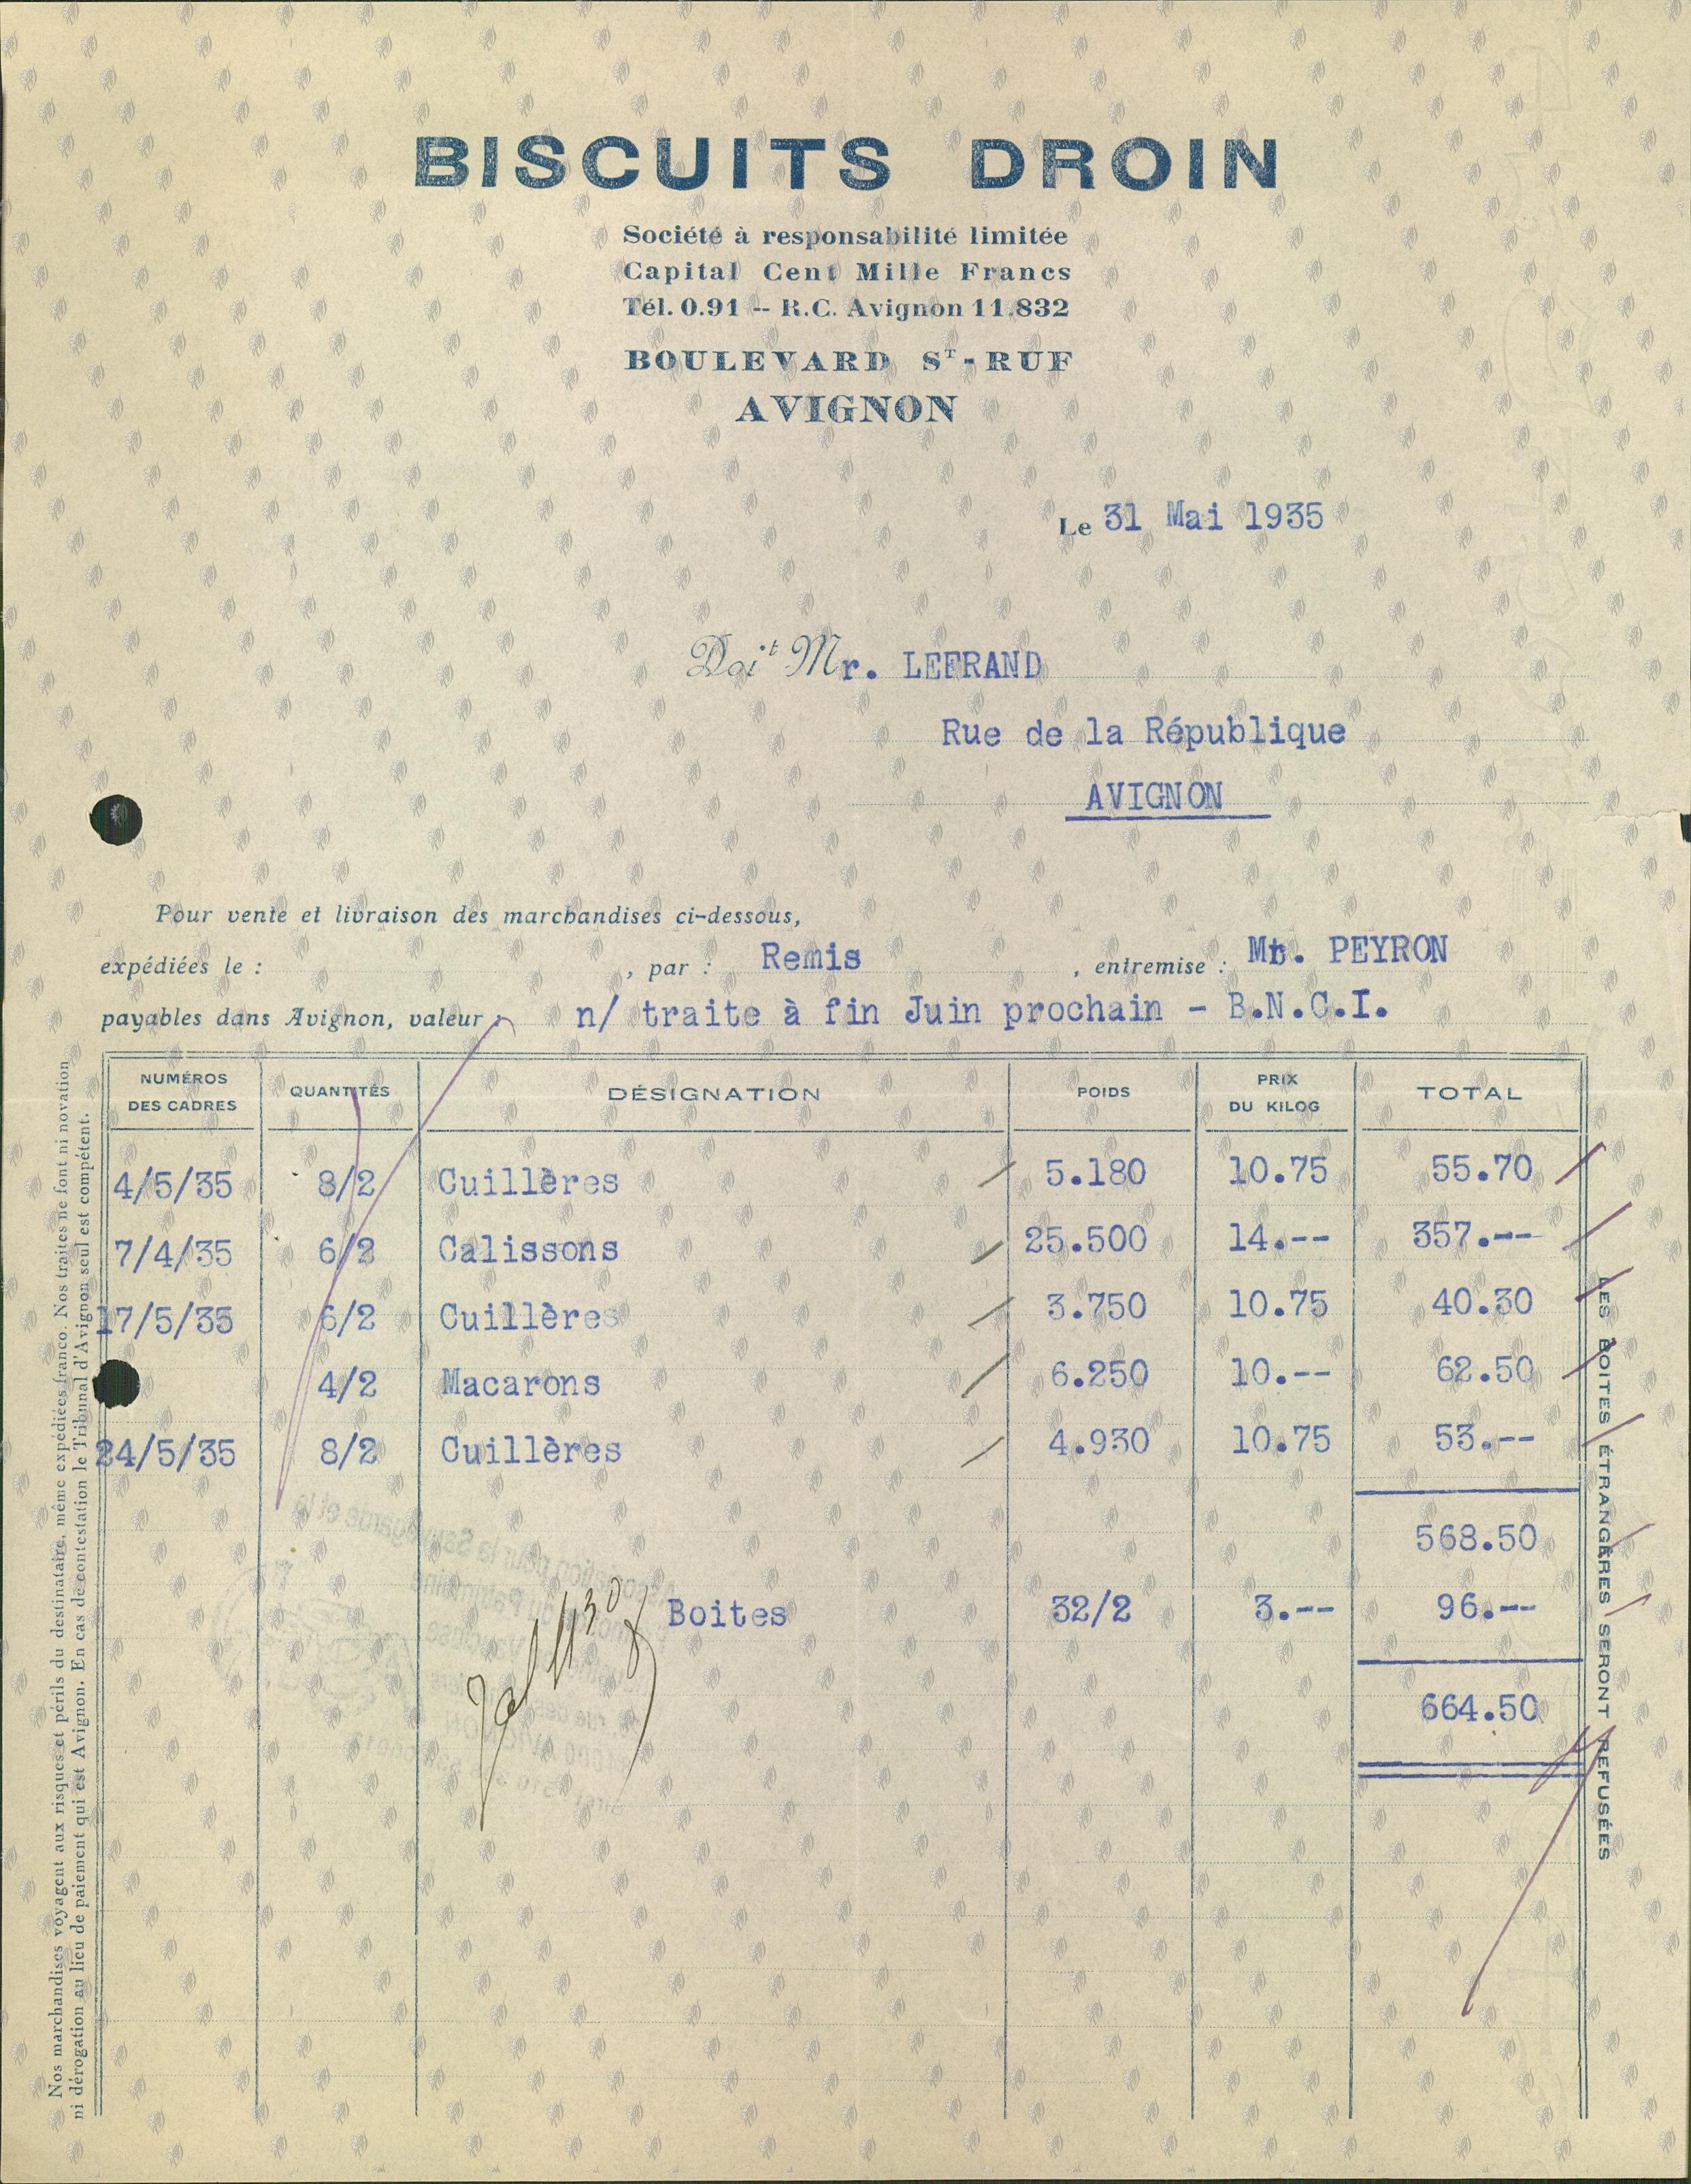 BISCUITS DROIN
Société à responsabilité limitée
Capital Cent Mille Francs
Tél. 0.91 -- R.C. Avignon 11.832
BOULEVARD ST-RUF
AVIGNON
Le 31 Mai 1935
Doit Mr. LEFRAND
Rue de la République
AVIGNON
Pour vente et livraison des marchandises ci-dessous,
expédiées le : , par : Remis , entremise : Mr. PEYRON
payables dans Avignon, valeur : n/ traite à fin Juin prochain - B.N.C.I.
NUMÉROS DES CADRES QUANTITÉS DÉSIGNATION POIDS PRIX DU KILOG TOTAL
4/5/35 8/2 Cuillères 5.180 10.75 55.70
7/4/35 6/2 Calissons 25.500 14.-- 357.--
17/5/35 6/2 Cuillères 3.750 10.75 40.30
4/2 Macarons 6.250 10.-- 62.50
24/5/35 8/2 Cuillères 4.930 10.75 53.--
568.50
Boites 32/2 3.-- 96.--
664.50
Nos marchandises voyagent aux risques et périls du destinataire, même expédiées franco. Nos traites ne font ni novation
ni dérogation au lieu de paiement qui est Avignon. En cas de contestation le Tribunal d'Avignon seul est compétent.
LES BOITES ÉTRANGÈRES SERONT REFUSÉES